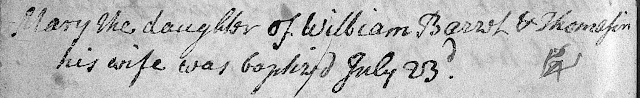 Mary the daughter of William Barrot & Thomasin
his wife was baptiz'd July 23d.